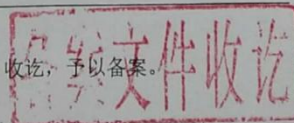 收讫，予以备案。
续文件收讫